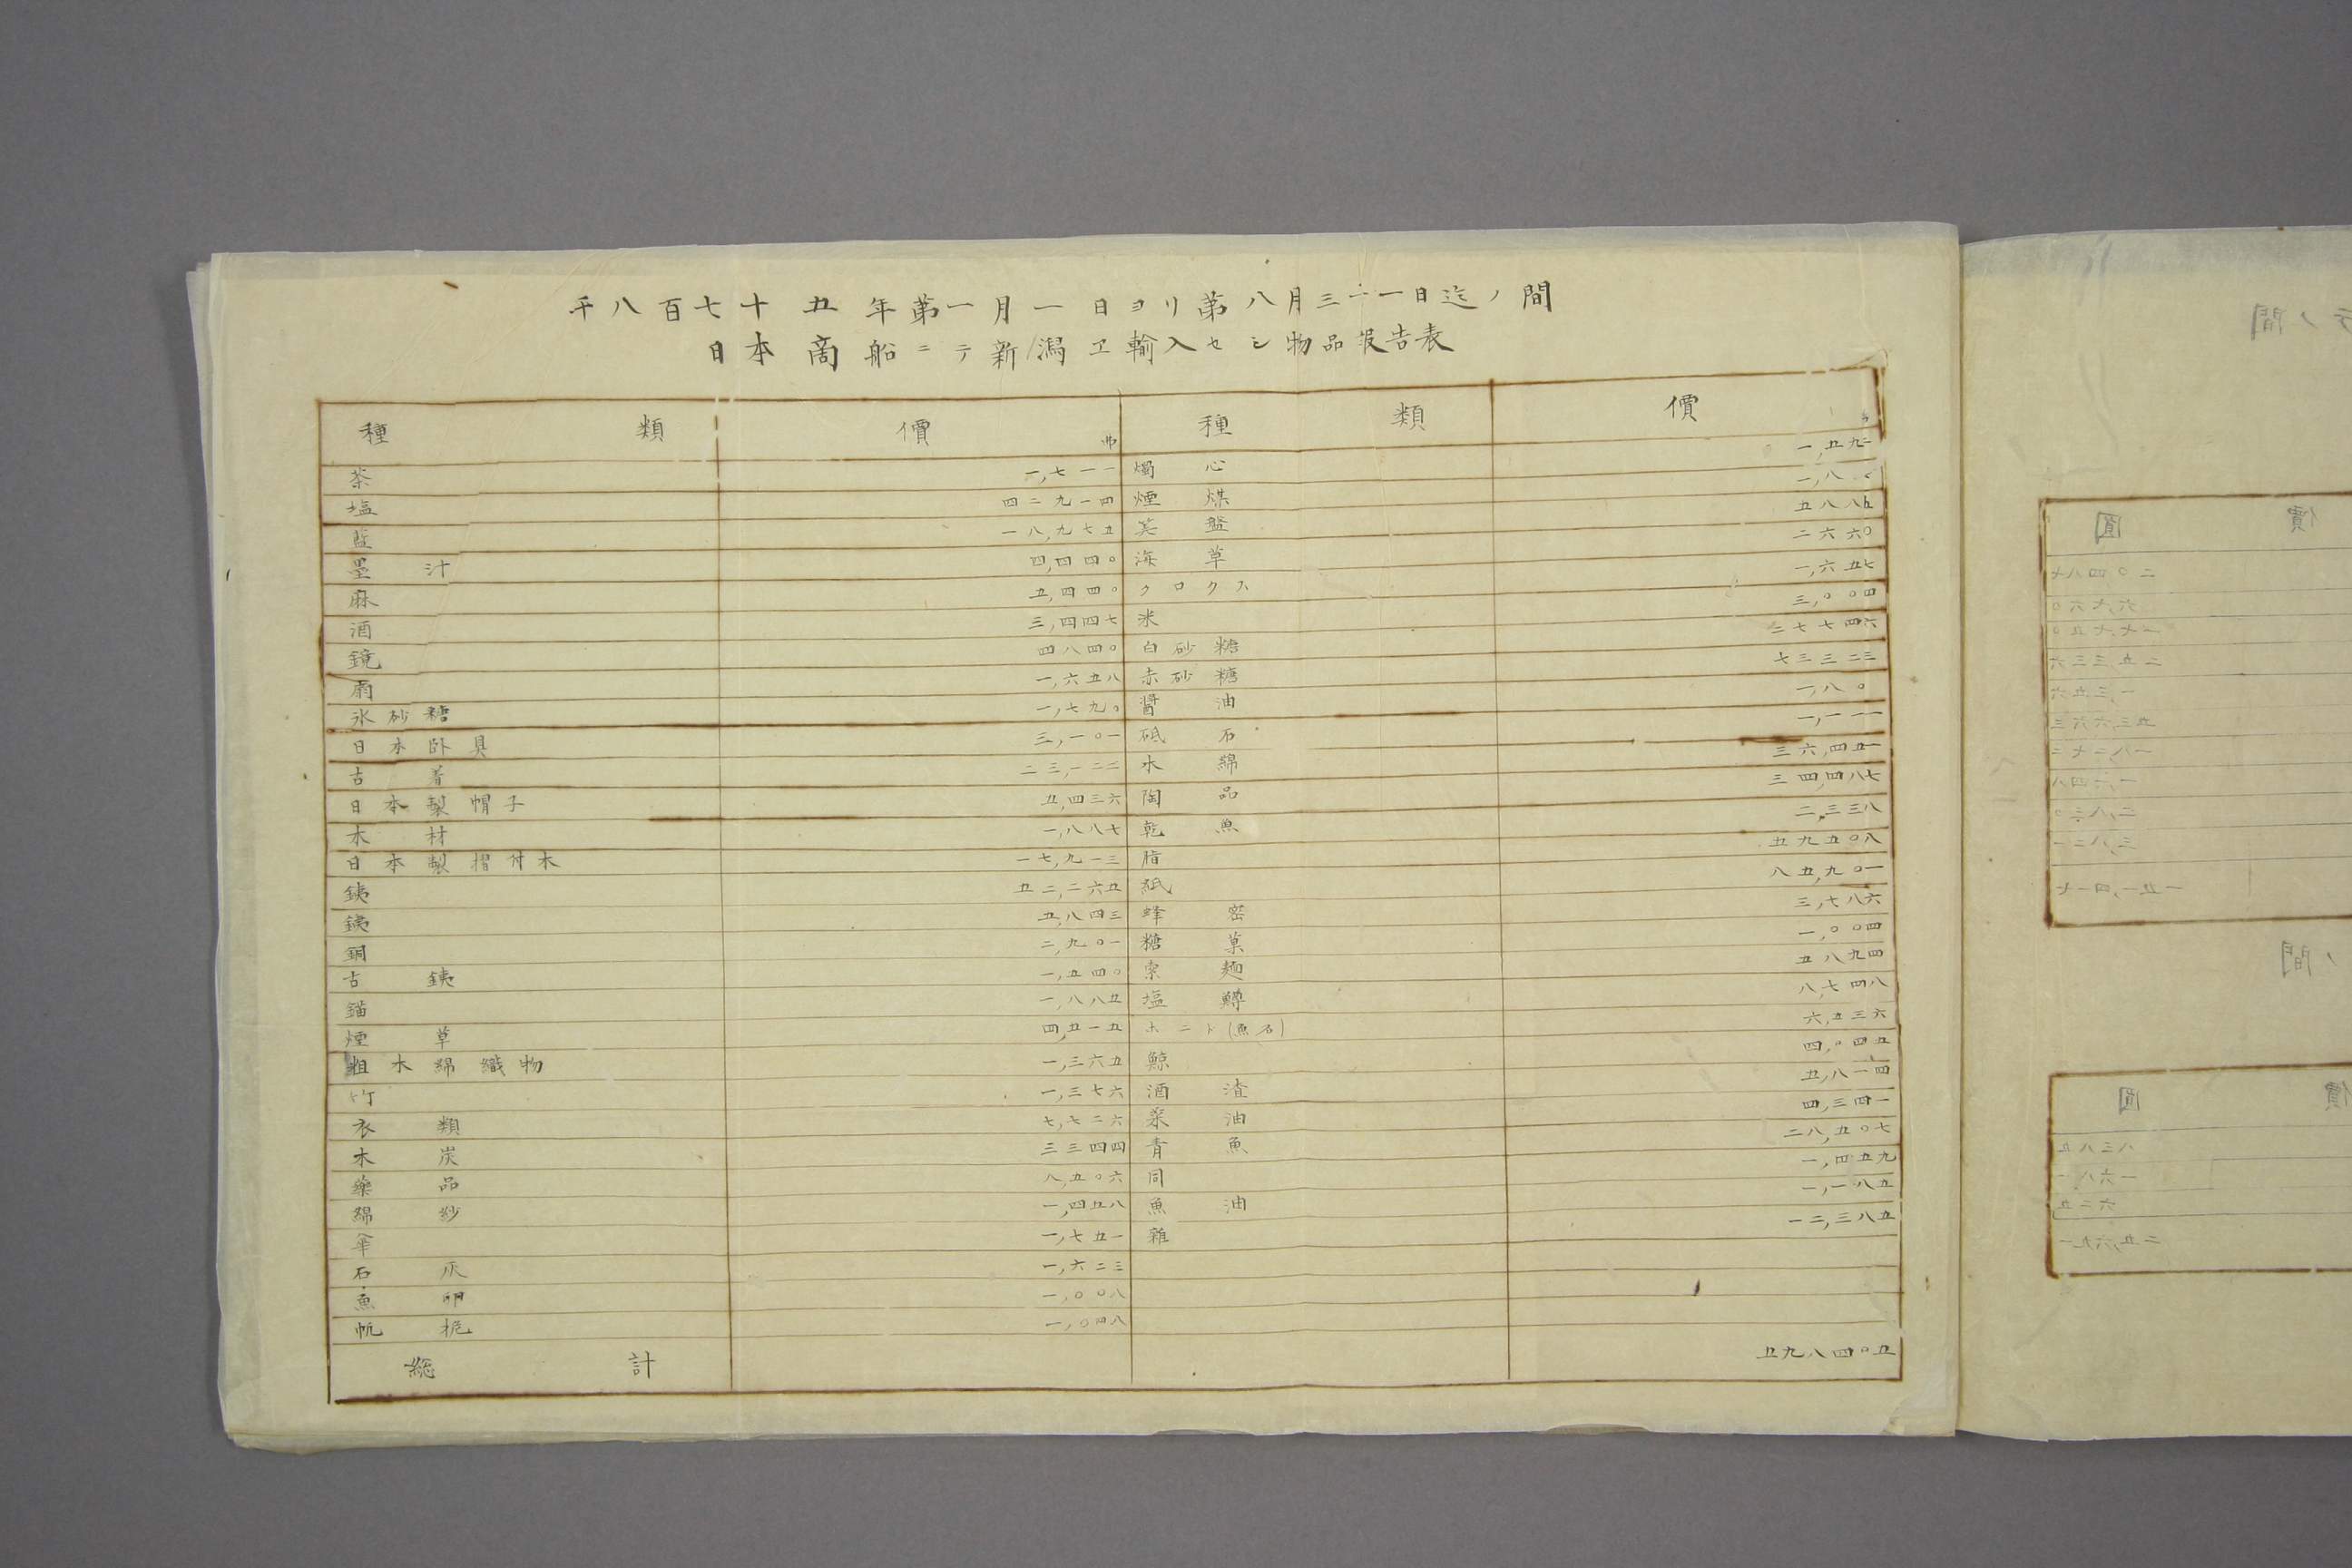 千八百七十五年第一月一日ヨリ第八月三十一日迄ノ間
日本商船ニテ新潟ヱ輸入セシ物品報告表
種類 價 弗 種類 價
茶 一,七一一 燭心 一,五九二
塩 四二九一四 煙煤 一,八
藍 一八,九七五 美盤 五八八五
墨汁 四,四四〇 海草 二六六〇
麻 五,四四〇 クロクス 一,六五七
酒 三,四四七 米 三,〇〇四
鏡 四八四〇 白砂糖 二七七四六
扇 一,六五八 赤砂糖 七三三二三
氷砂糖 一,七九〇 醤油 一,八〇
日本卧具 三,一〇一 砥石 一,一一一
古着 二三,一二二 木綿 三六,四五一
日本製帽子 五,四三六 陶品 三四,四八七
木材 一,八八七 乾魚 二,三三八
日本製摺付木 一七,九一三 脂 五九五〇八
銕 五二,二六五 紙 八五,九〇一
銕 五,八四三 蜂密 三,七八六
銅 二,九〇一 糖菓 一,〇〇四
古銕 一,五四〇 索麺 五八九四
錨 一,八八五 塩鱒 八,七四八
煙草 四,五一五 ホニト(魚名) 六,五三六
粗木綿織物 一,三六五 鯨 四,〇四五
竹 一,三七六 酒渣 五,八一四
衣類 七,七二六 菜油 四,三四一
木炭 三三四四 青魚 二八,五〇七
藥品 八,五〇六 同 一,四五九
綿紗 一,四五八 魚油 一,一八五
傘 一,七五一 雜 一二,三八五
石灰 一,六二三
魚卵 一,〇〇八
帆桅 一,〇四八
総計 五九八四〇五